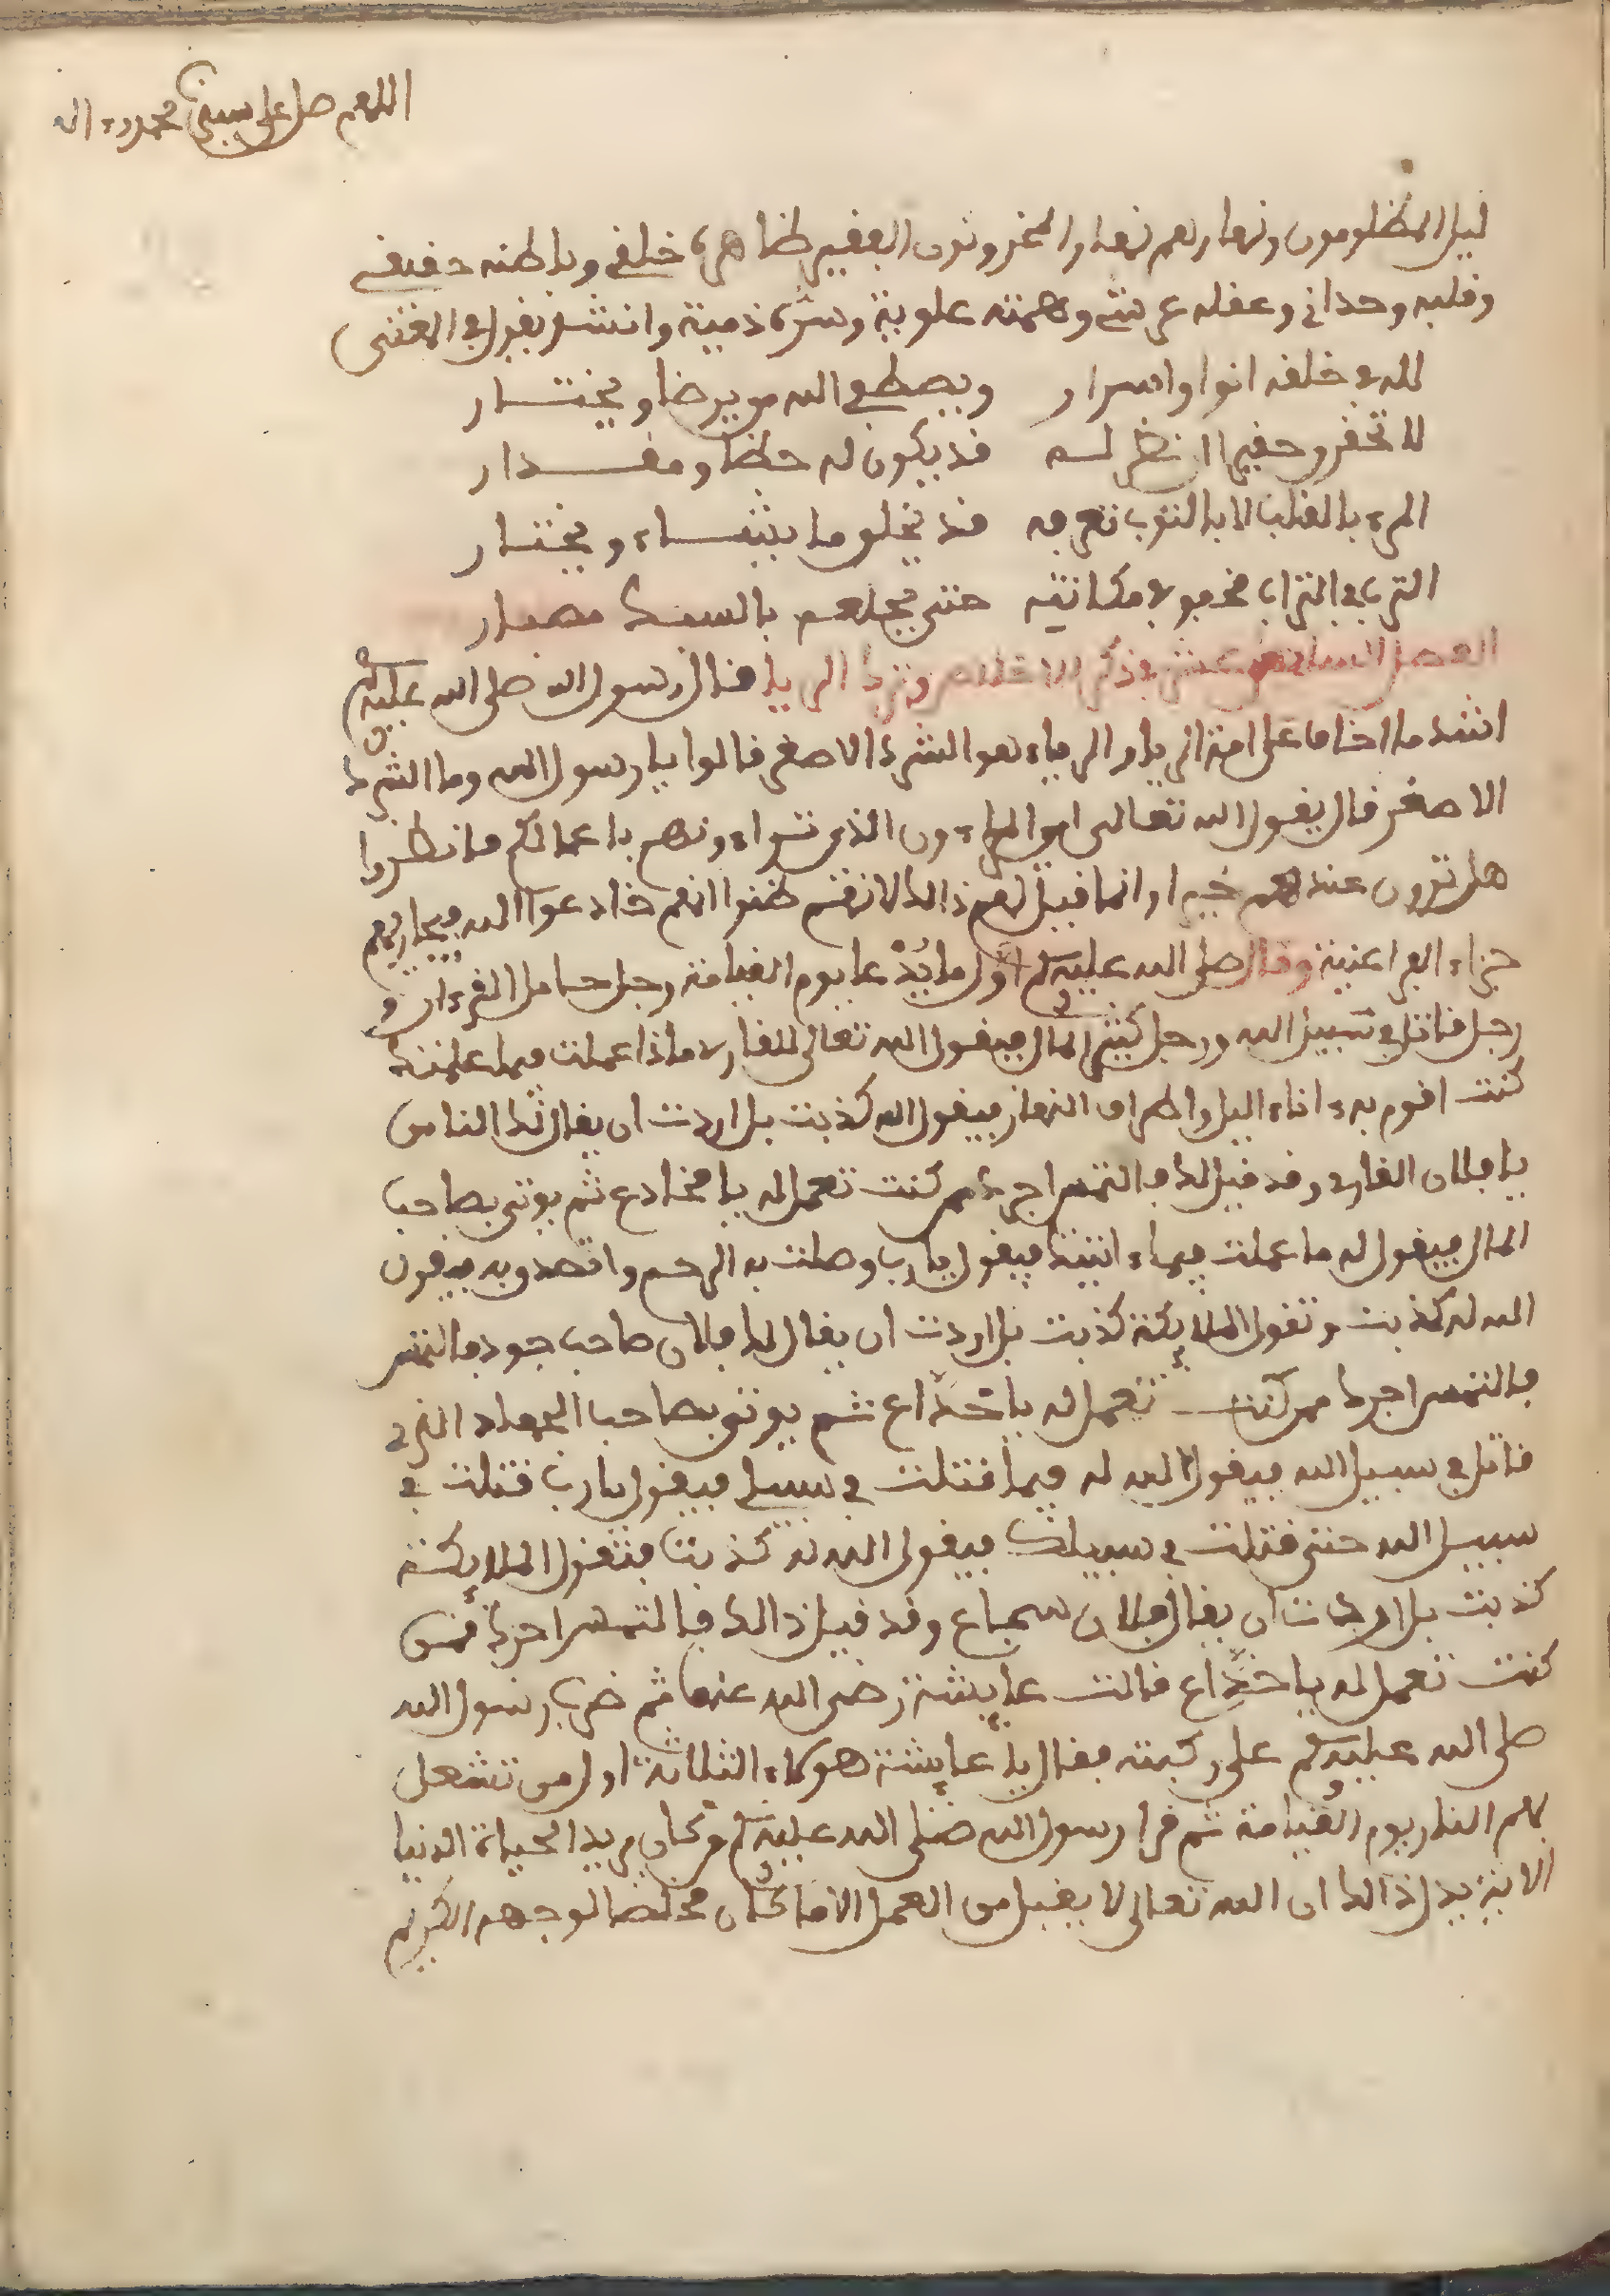 اللهم صل على سيدنا محمد وءاله
ليل المظلومون ونهارهم نهار المحزونون الفقير ظاهره خلقي وباطنه حقيقي
وقلبه وحداني وعقله عرشي وهمته علوية وسره ذمية وانشد يقول في المعنى
لله في خلقه انوا واسرار ويصطفي الله من يرضا ويختار
لا تحقرو حقيرا انظر له قد يكون له حظا ومقدار
المرء بالقلب لا بالثوب تعرفه قد يخلو ما يشاء ويختار
التبر في التراب مخبو في مكانته حتى يجلهم بالسبك
الفصل السادس عشر في ذكر الاخلاص وترك الريا قال رسول الله صلى الله عليه وسلم
اشد ما اخاف على امتي الريا والرياء هو الشرك الاصغر قالوا يا رسول الله وما الشرك
الاصغر قال يقول الله تعالى اين المراءون الذي تراءونهم باعمالكم فانظروا
هل ترون عندهم خيرا وانما قيل لهم ذالك لانهم ظنوا انهم خادعوا الله فيجازيهم
جزاء الفراعنية وقال صلى الله عليه وسلم اول ما يدعا يوم القيامة رجل حامل القرءان و
رجل قاتل في سبيل الله ورجل كثير المال فيقول الله تعالى للقارء ماذا عملت فيما علمته
كنت اقوم به ءاناء اليل واطراف النهار فيقول الله كذبت بل اردت ان يقال لك الناس
يا فلان القارء وقد قيل لك فالتمس اجرك ممن كنت تعمل له يا مخادع ثم يوتى بصاحب
المال فيقول له ما عملت فيما ءاتيتك فيقول يا رب وصلت به الرحم واتصدق به فيقول
الله له كذبت وتقول الملائكة كذبت بل اردت ان يقال لك فلان صاحب جود فالتمس
فالتمس اجرك ممن كنت تعمل له يا خداع ثم يوتى بصاحب الجهاد الذي
قاتل في سبيل الله فيقول الله له فيما قتلت في سبيلي فيقول يا رب قتلت في
سبيل الله حتى قتلت في سبيلك فيقول الله له كذبت فتقول الملائكة
كذبت بل اردت ان يقال فلان سجاع وقد قيل ذالك فالتمس اجرك ممن
كنت تعمل له يا خداع قالت عايشة رضي الله عنها ثم ضرب رسول الله
صلى الله عليه وسلم على ركبته فقال يا عايشة هؤلاء الثلاثة اول من تشعل
بهم النار يوم القيامة ثم قرا رسول الله صلى الله عليه وسلم من كان يريد الحياة الدنيا
الاية يدل ذالك ان الله تعالى لا يقبل من العمل الا ما كان مخلصا لوجهه الكريم